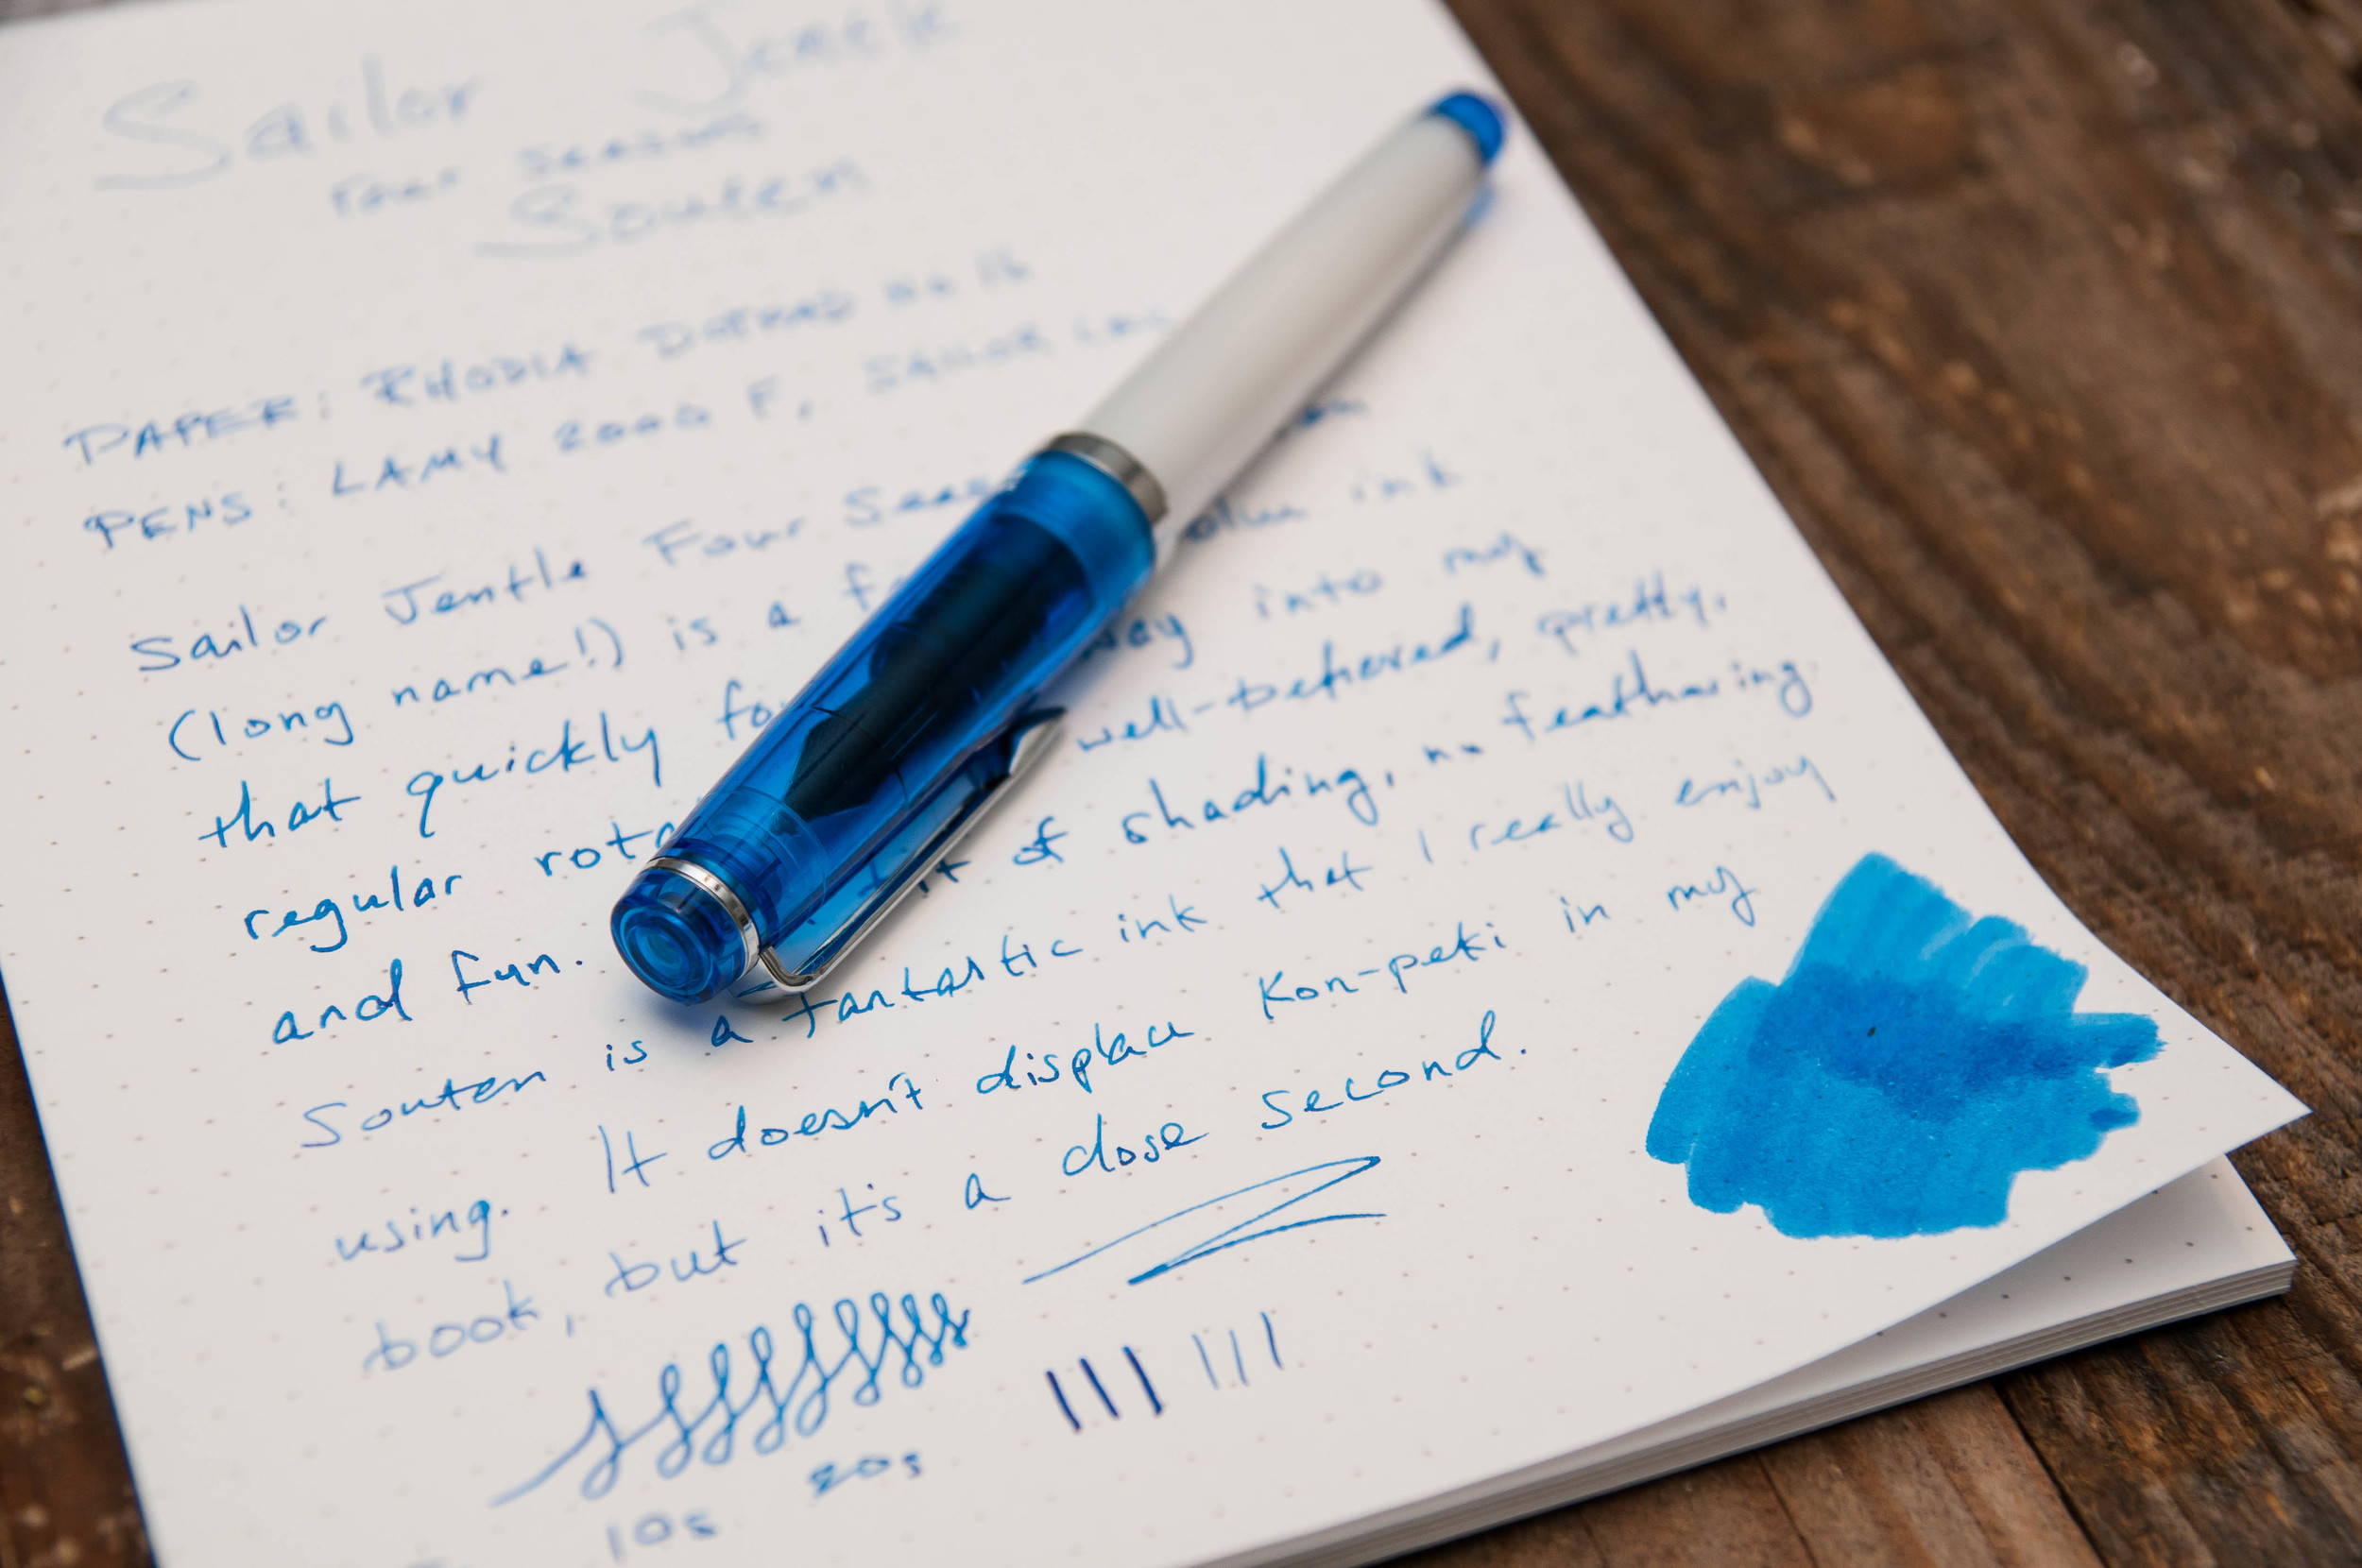 Sailor Jentle
Four Seasons
Souten
PAPER: RHODIA DOTPAD No 16
PENS: LAMY 2000 F, SAILOR
Sailor Jentle Four
(long name!) is a ink
that quickly way into my
regular well-behaved, pretty,
and fun. of shading, no feathering
Souten is a fantastic ink that I really enjoy
using. It doesn't displace Kon-peki in my
book, but it's a close second.
10s 20s